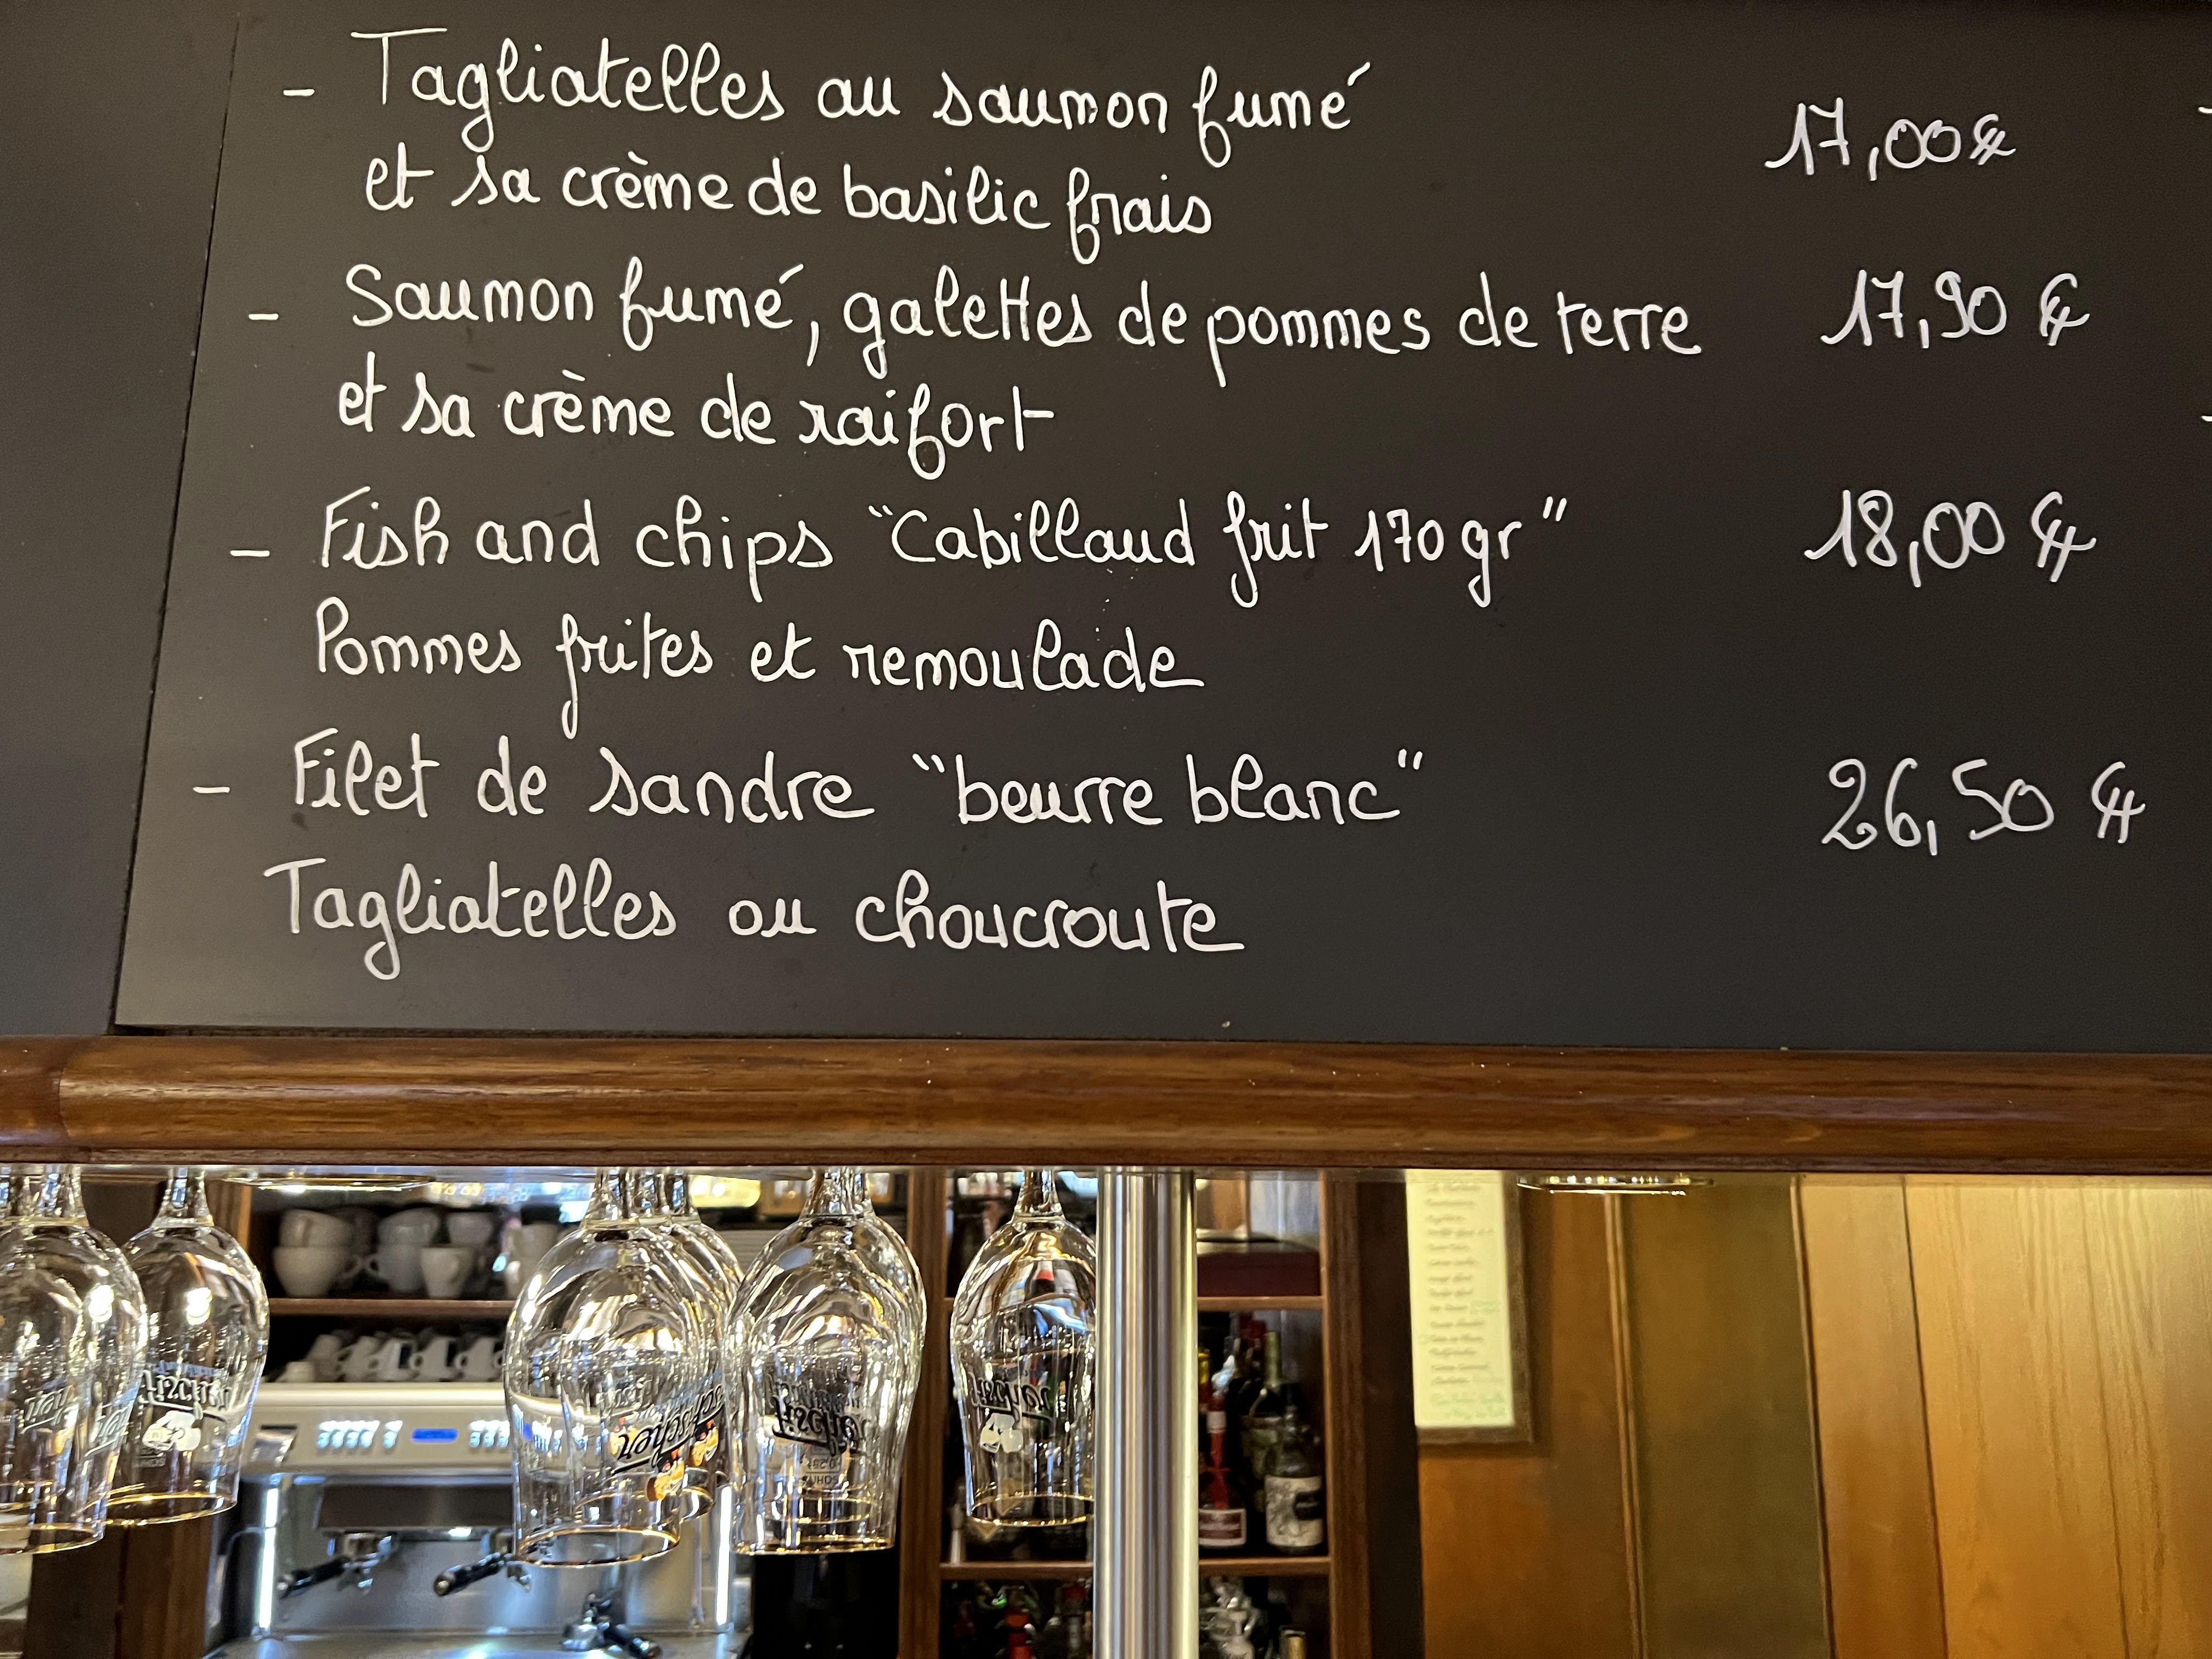 - Tagliatelles au saumon fumé 17,00€
et sa crème de basilic frais
- Saumon fumé, galettes de pommes de terre 17,90 €
et sa crème de raifort
- Fish and chips "Cabillaud frit 170 gr" 18,00 €
Pommes frites et remoulade
- Filet de sandre "beurre blanc" 26,50 €
Tagliatelles ou choucroute
Fischer
Fischer
Fischer
Fischer